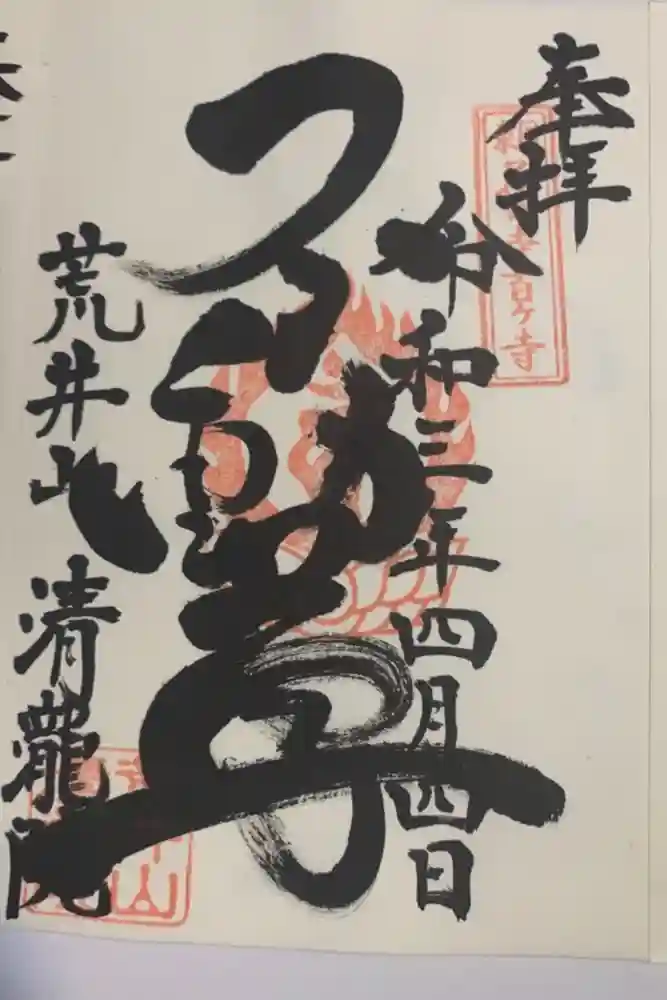 奉拝
令和三年四月四日
不動尊
荒井山 清瀧院